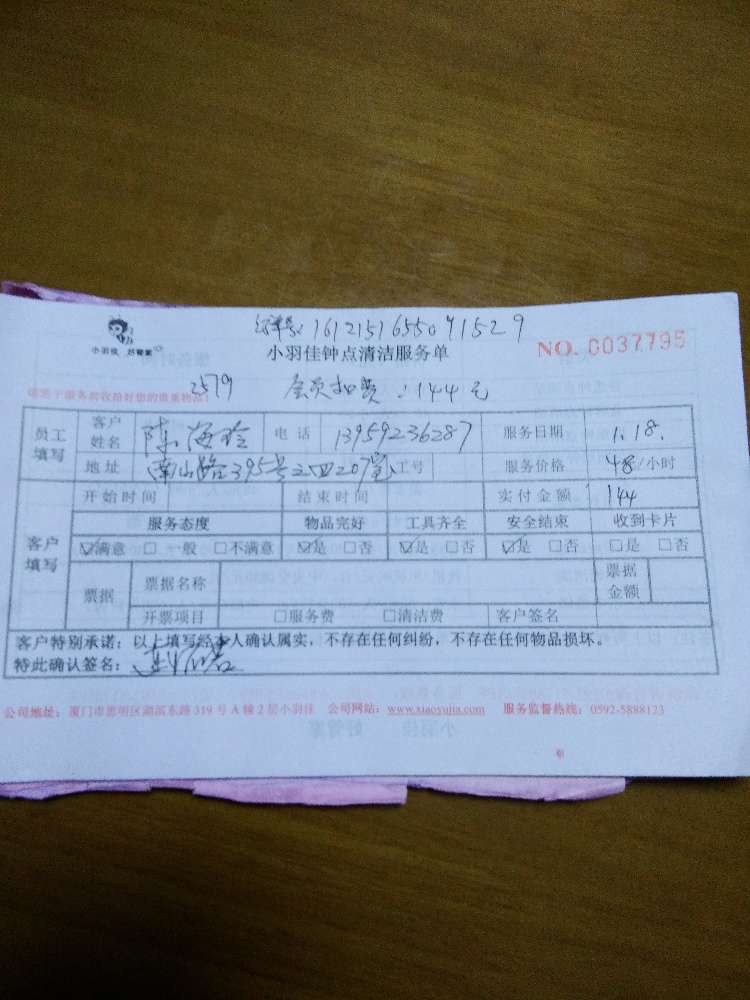 订单号：1612151655041529
小羽佳 好管家
小羽佳钟点清洁服务单
NO. 0037795
2579 会员扣费：144元
员工填写 客户姓名 陈海玲 电话 13959236287 服务日期 1.18.
地址 南山路395号 207室 工号 服务价格 48/小时
开始时间 结束时间 实付金额 144
客户填写 服务态度 物品完好 工具齐全 安全结束 收到卡片
☑满意 □一般 □不满意 ☑是 □否 ☑是 □否 ☑是 □否 □是 □否
票据 票据名称 票据金额
开票项目 □服务费 □清洁费 客户签名
客户特别承诺：以上填写经本人确认属实，不存在任何纠纷，不存在任何物品损坏。
特此确认签名：
公司地址：厦门市思明区湖滨东路319号A幢2层小羽佳 公司网站：www.xiaoyujia.com 服务监督热线：0592-5888123